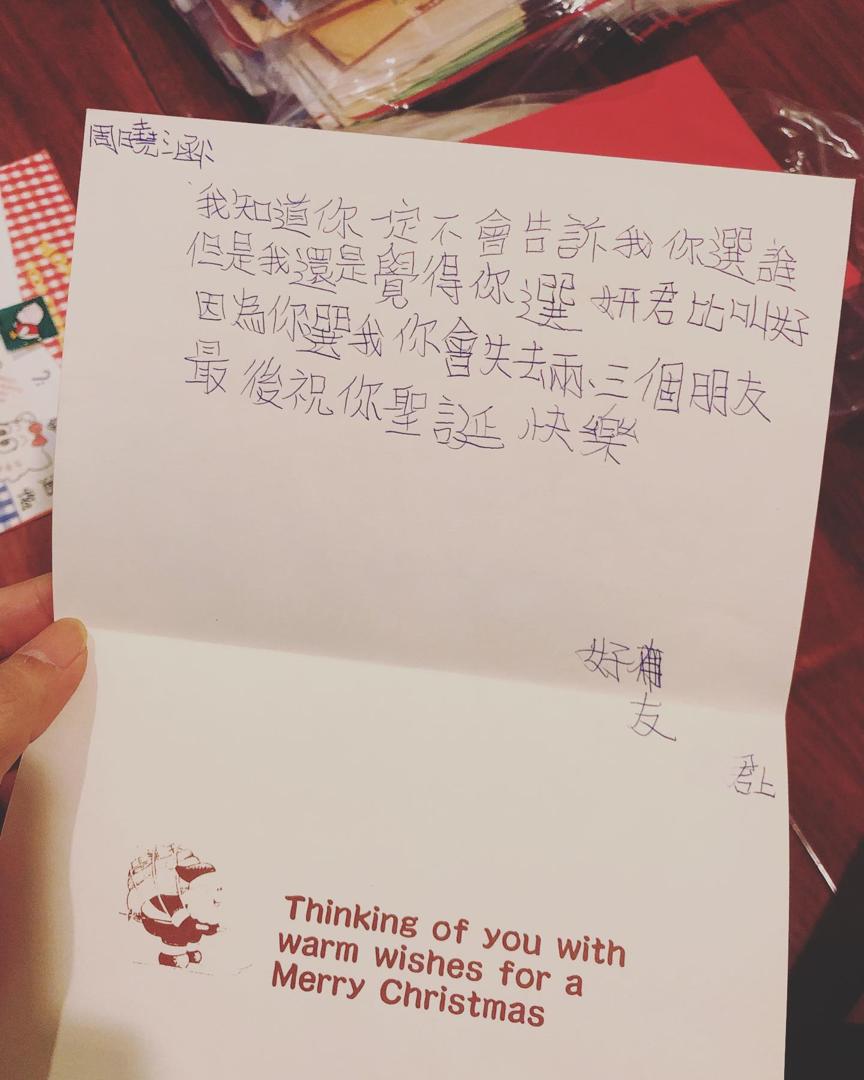 周曉涵
我知道你一定不會告訴我你選誰
但是我還是覺得你選妍君比叫好
因為你選我你會失去兩、三個朋友
最後祝你聖誕快樂
好
友
君上
Thinking of you with
warm wishes for a
Merry Christmas